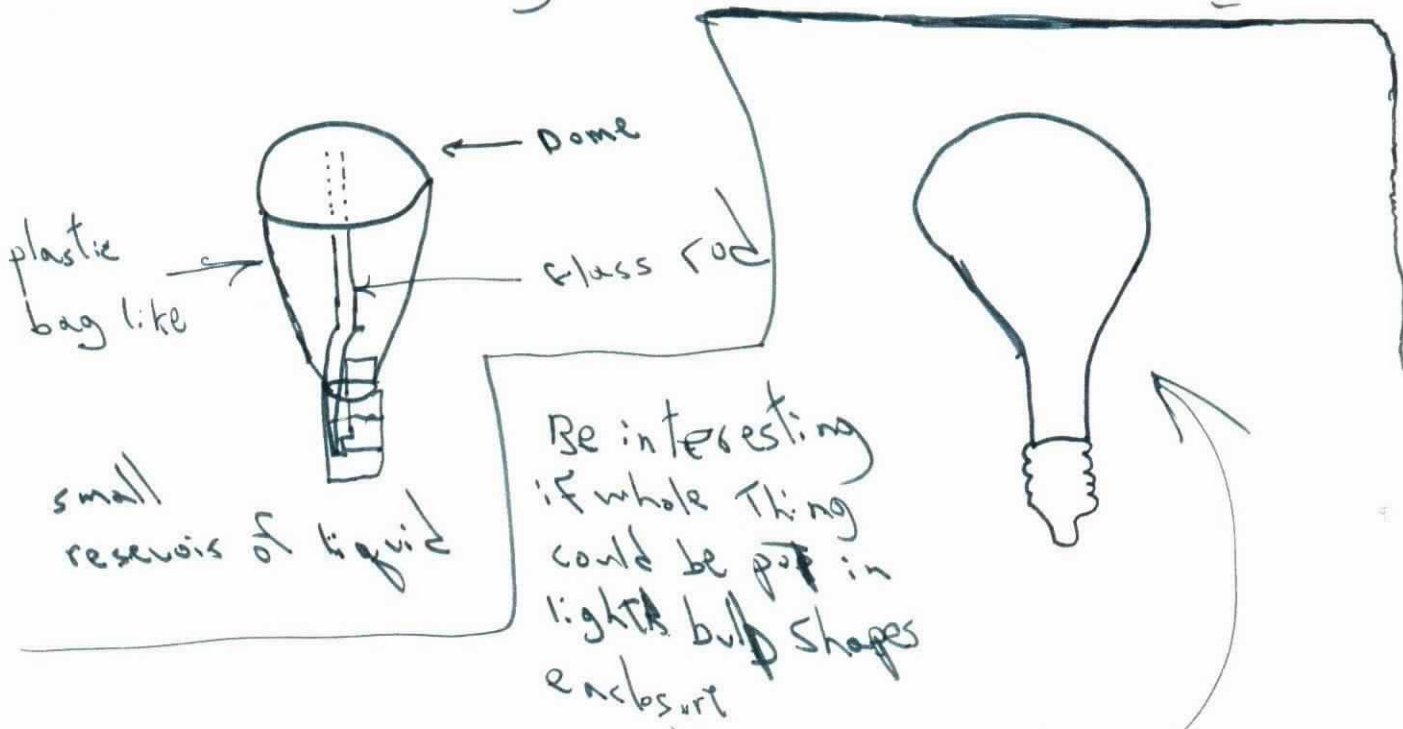 Dome
plastic
bag like
Glass rod
small
resevois of liquid
Be interesting
if whole Thing
could be put in
light bulb shapes
enclosure